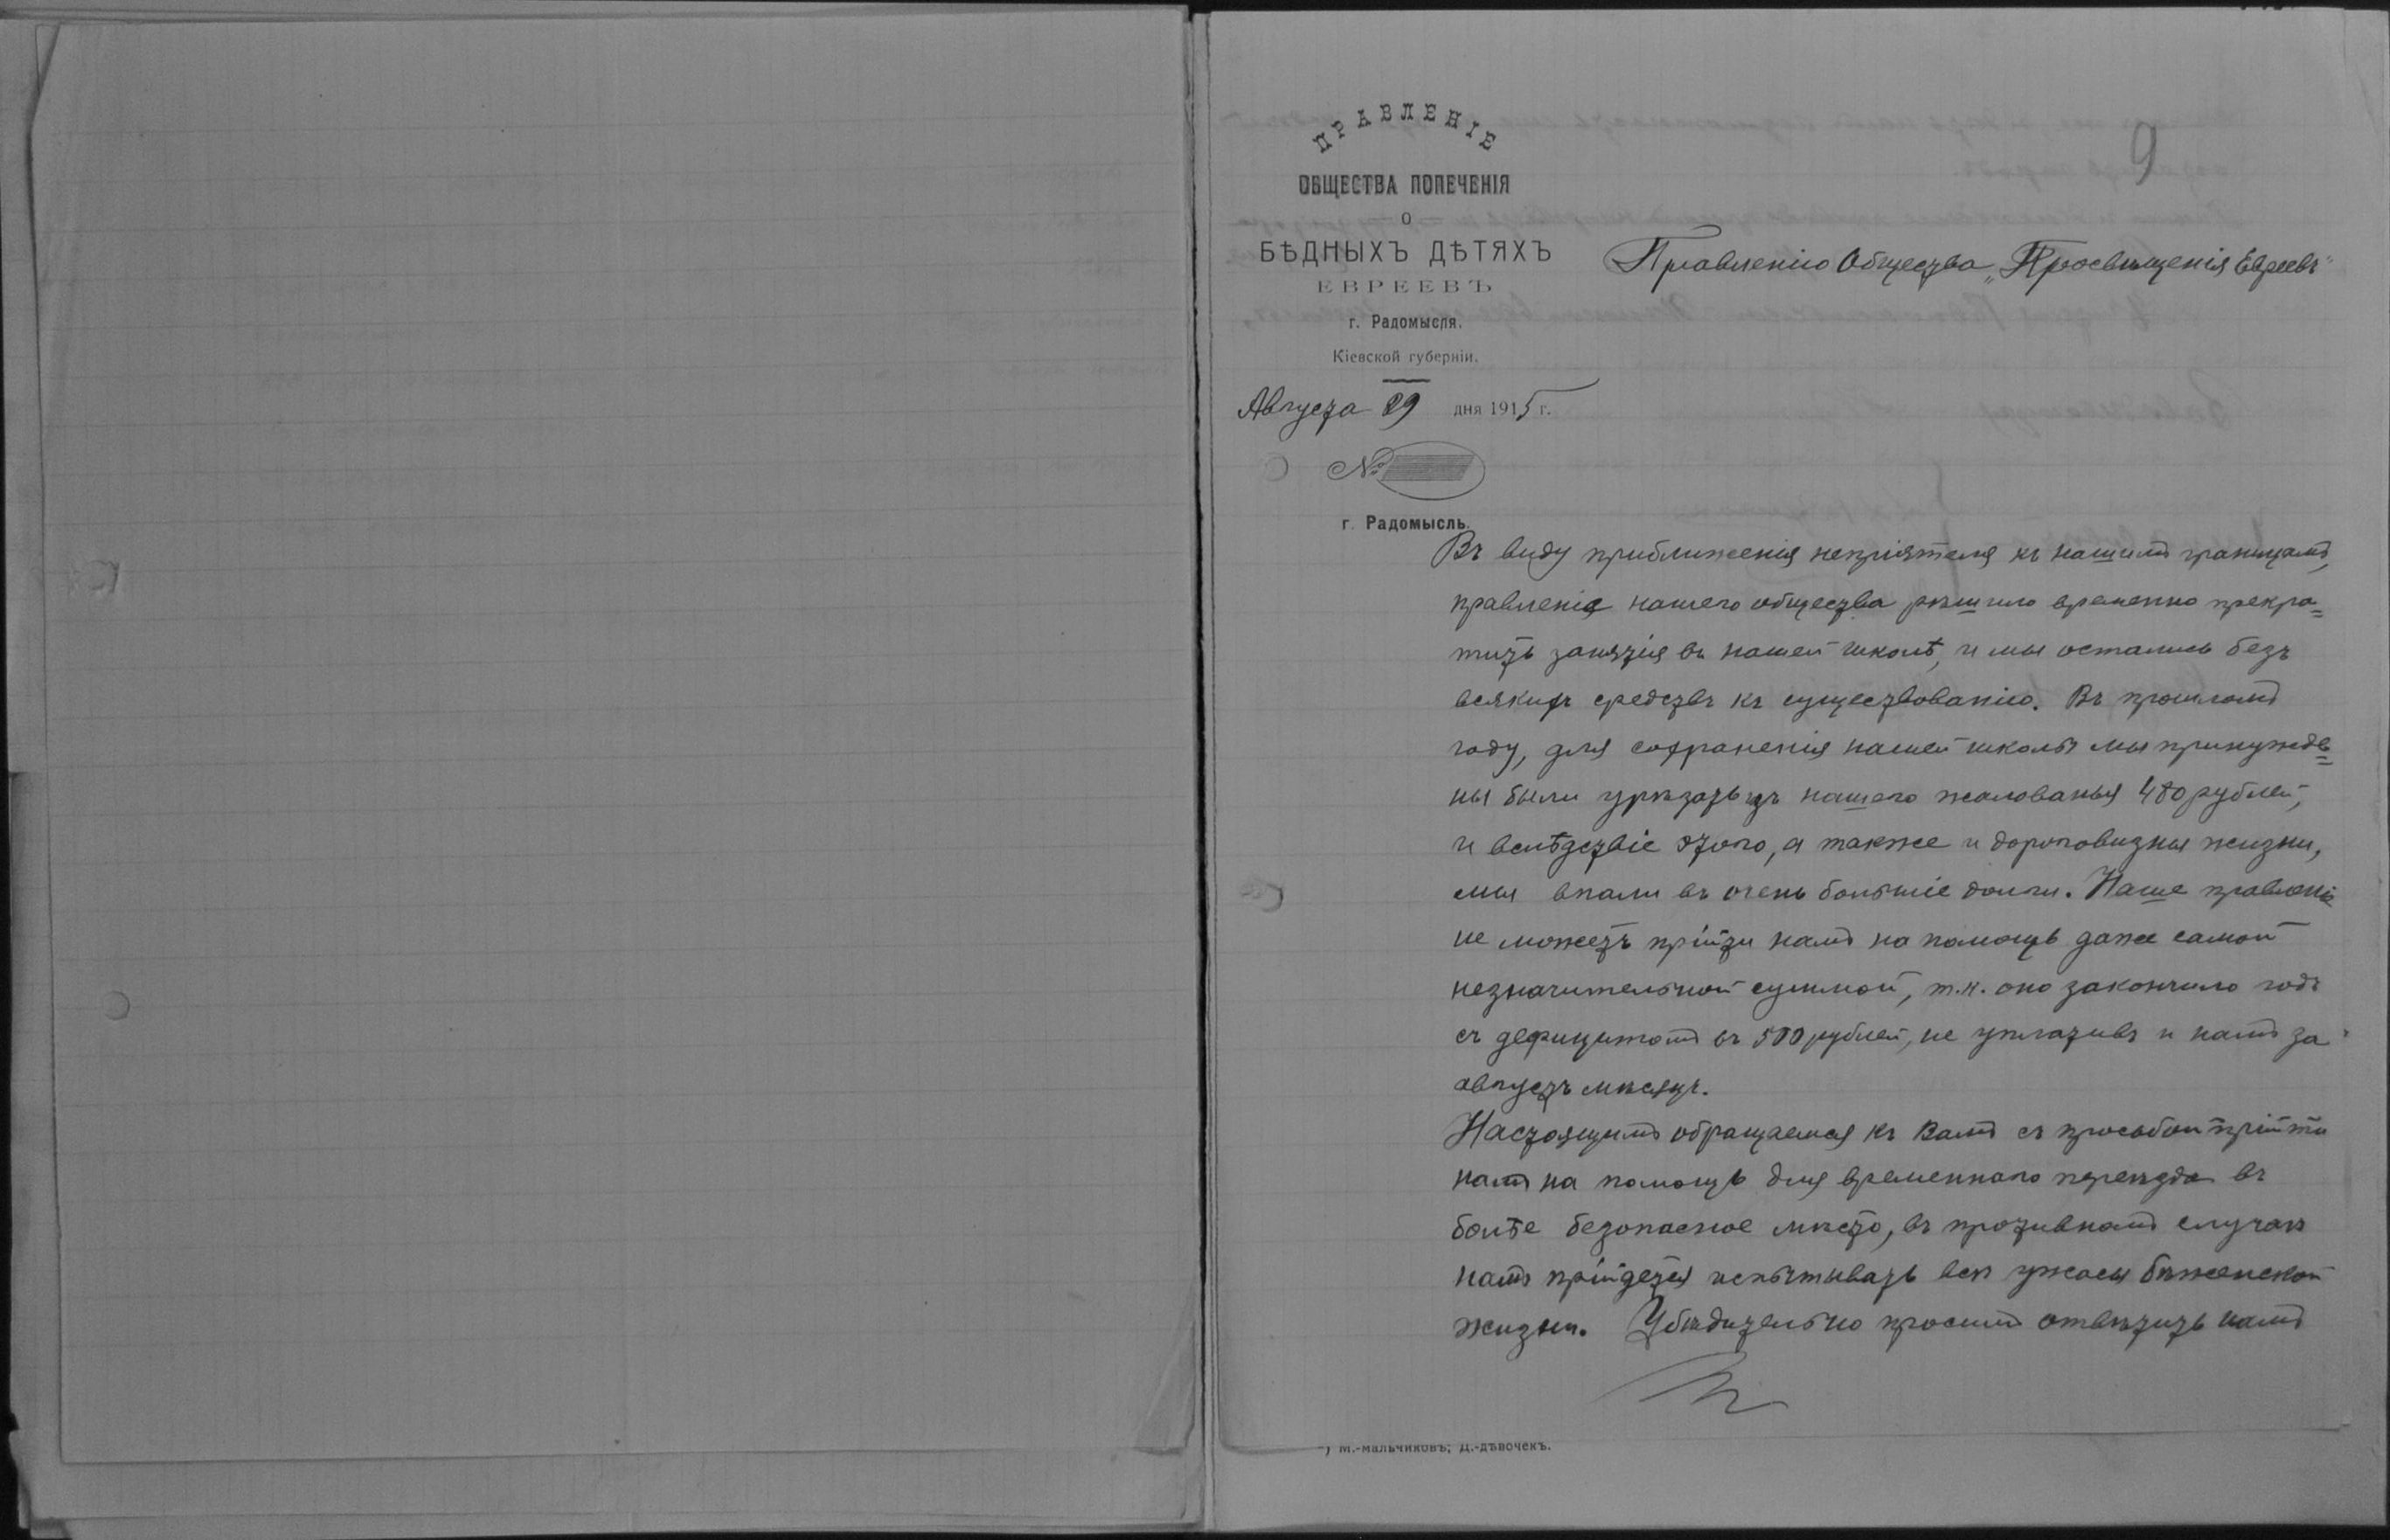 9
ПРАВЛЕНІЕ
ОБЩЕСТВА ПОПЕЧЕНІЯ
О
БѢДНЫХЪ ДѢТЯХЪ
ЕВРЕЕВЪ
г. Радомысля.
Кіевской губерніи.
Августа 29 дня 1915 г.
№
г. Радомысль.
Правленію Общества „Просвѣщенія Евреевъ"
Въ виду приближенія непріятеля къ нашимъ границамъ,
правленіе нашего общества рѣшило временно прекра=
тить занятія въ нашей школѣ, и мы остались безъ
всякихъ средствъ къ существованію. Въ прошломъ
году, для сохраненія нашей школы мы принужде=
ны были урѣзать изъ нашего жалованья 480 рублей,
и вслѣдствіе этого, а также и дороговизны жизни,
мы впали въ очень большіе долги. Наше правленіе
не можетъ прійти намъ на помощь даже самой
незначительной суммой, т.к. оно закончило годъ
съ дефицитомъ въ 500 рублей, не уплативъ и намъ за
августъ мѣсяцъ.
Настоящимъ обращаемся къ Вамъ съ просьбой прійти
намъ на помощь для временнаго переѣзда въ
болѣе безопасное мѣсто, въ противномъ случаѣ
намъ прійдется испытывать всѣ ужасы бѣженской
жизни. Убѣдительно просимъ отвѣтить намъ
*) М.-мальчиковъ; Д.-дѣвочекъ.